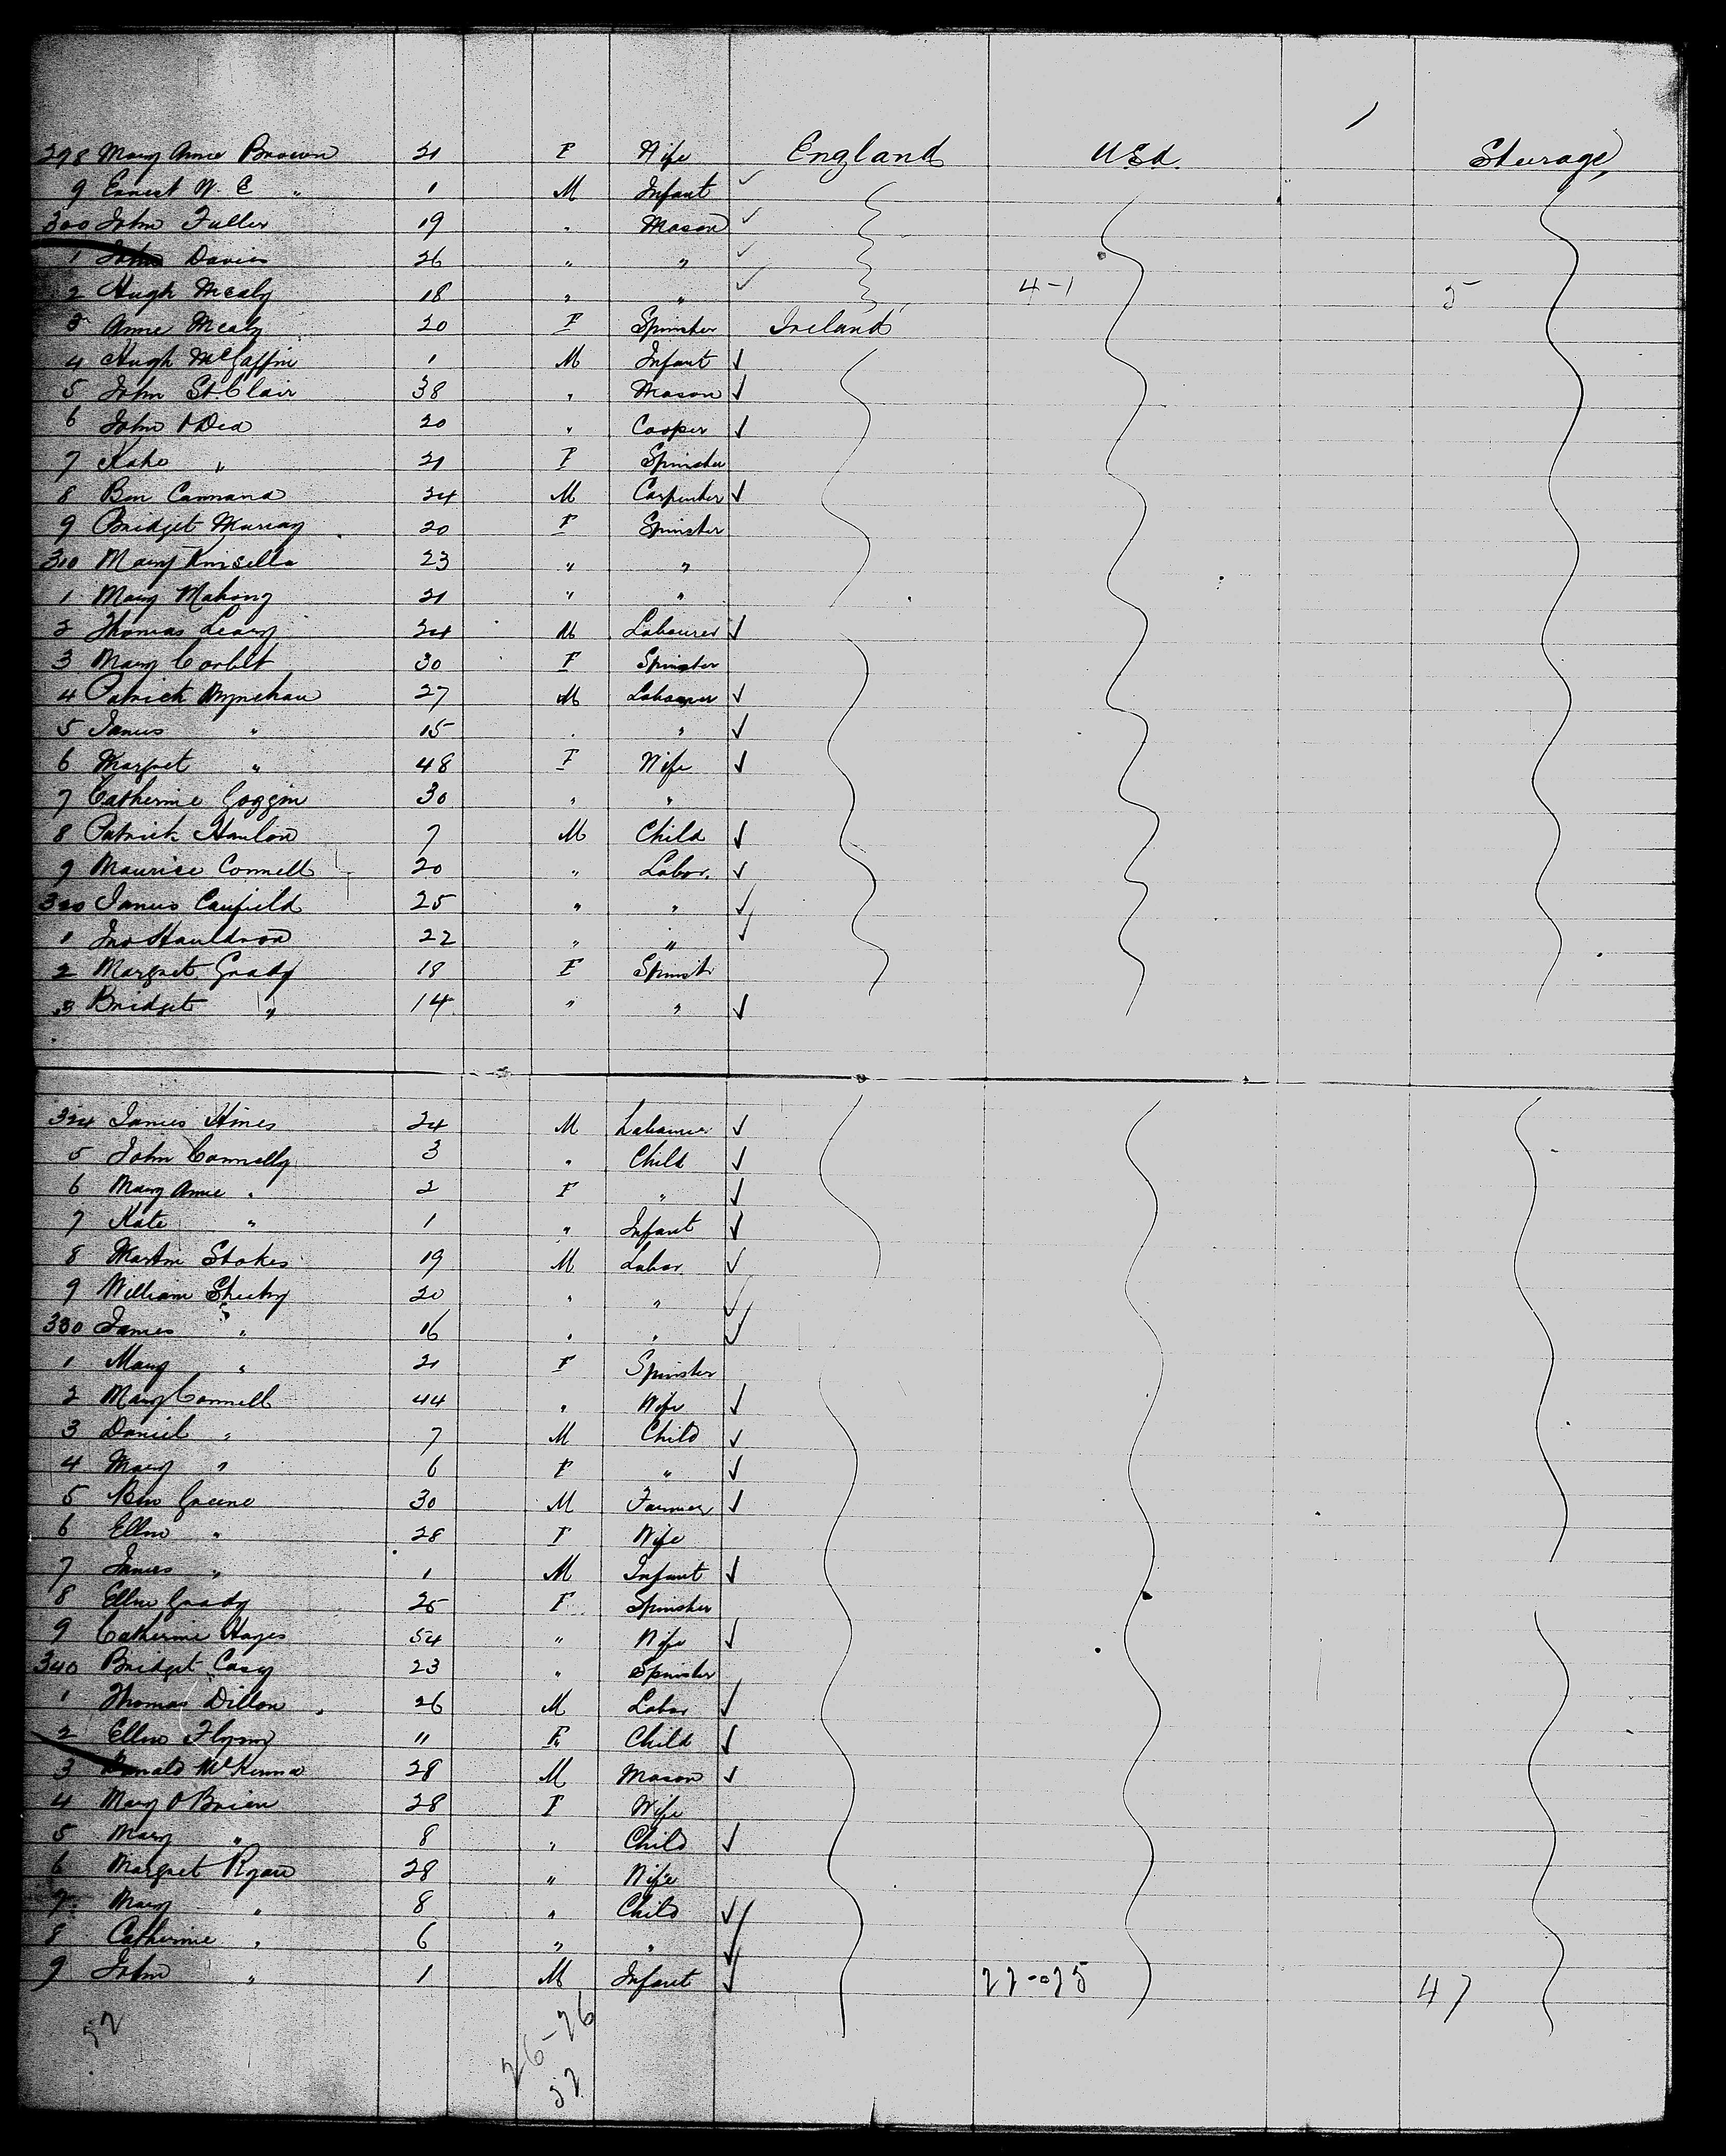 298 Mary Anne Brown 21 F Wife England U.S.A. Steerage
9 Ernest W. E " 1 M Infant ✓
300 John Fuller 19 " Mason ✓
1 John Davies 26 " " ✓
2 Hugh Mealy 18 " " ✓ 4-1 5
3 Anne Mealy 20 F Spinster Ireland
4 Hugh McGaffin 1 M Infant ✓
5 John St.Clair 38 " Mason ✓
6 John O'Dea 20 " Cooper ✓
7 Kate " 21 F Spinster
8 Ben Cannana 24 M Carpenter ✓
9 Bridget Murray 20 F Spinster
310 Mary Kinsella 23 " "
1 Mary Mahony 21 " "
2 Thomas Leary 24 M Labourer ✓
3 Mary Corbett 30 F Spinster
4 Patrick 27 M Labourer ✓
5 James " 15 " " ✓
6 Margret " 48 F Wife ✓
7 Catherine Goggin 30 " "
8 Patrick Hanlon 7 M Child ✓
9 Maurice Connell 20 " Labor. ✓
320 James Caufield 25 " " ✓
1 Jno Hauldron 22 " " ✓
2 Margret Grady 18 F Spinstr
3 Bridget " 14 " " ✓
324 James Hines 24 M Labourer ✓
5 John Connelly 3 " Child ✓
6 Mary Anne " 2 F " ✓
7 Kate " 1 " Infant ✓
8 Martin Stokes 19 M Labor ✓
9 William Sheehy 20 " " ✓
330 James " 16 " " ✓
1 Mary " 21 F Spinster
2 Mary Connell 44 " Wife ✓
3 Daniel " 7 M Child ✓
4 Mary " 6 F " ✓
5 Ben Greene 30 M Farmer ✓
6 Ellen " 28 F Wife
7 James " 1 M Infant ✓
8 Ellen Grady 25 F Spinster
9 Catherine Hayes 54 " Wife ✓
340 Bridget Casey 23 " Spinster
1 Thomas Dillon 26 M Labor ✓
2 Ellen Flynn 11 F Child ✓
3 Donald McKenna 28 M Mason ✓
4 Mary O'Brien 28 F Wife
5 Mary " 8 " Child ✓
6 Margret Ryan 28 " Wife
7 Mary " 8 " Child ✓
8 Catherine " 6 " " ✓
9 John " 1 M Infant ✓ 22-25 47
52 26-26
52